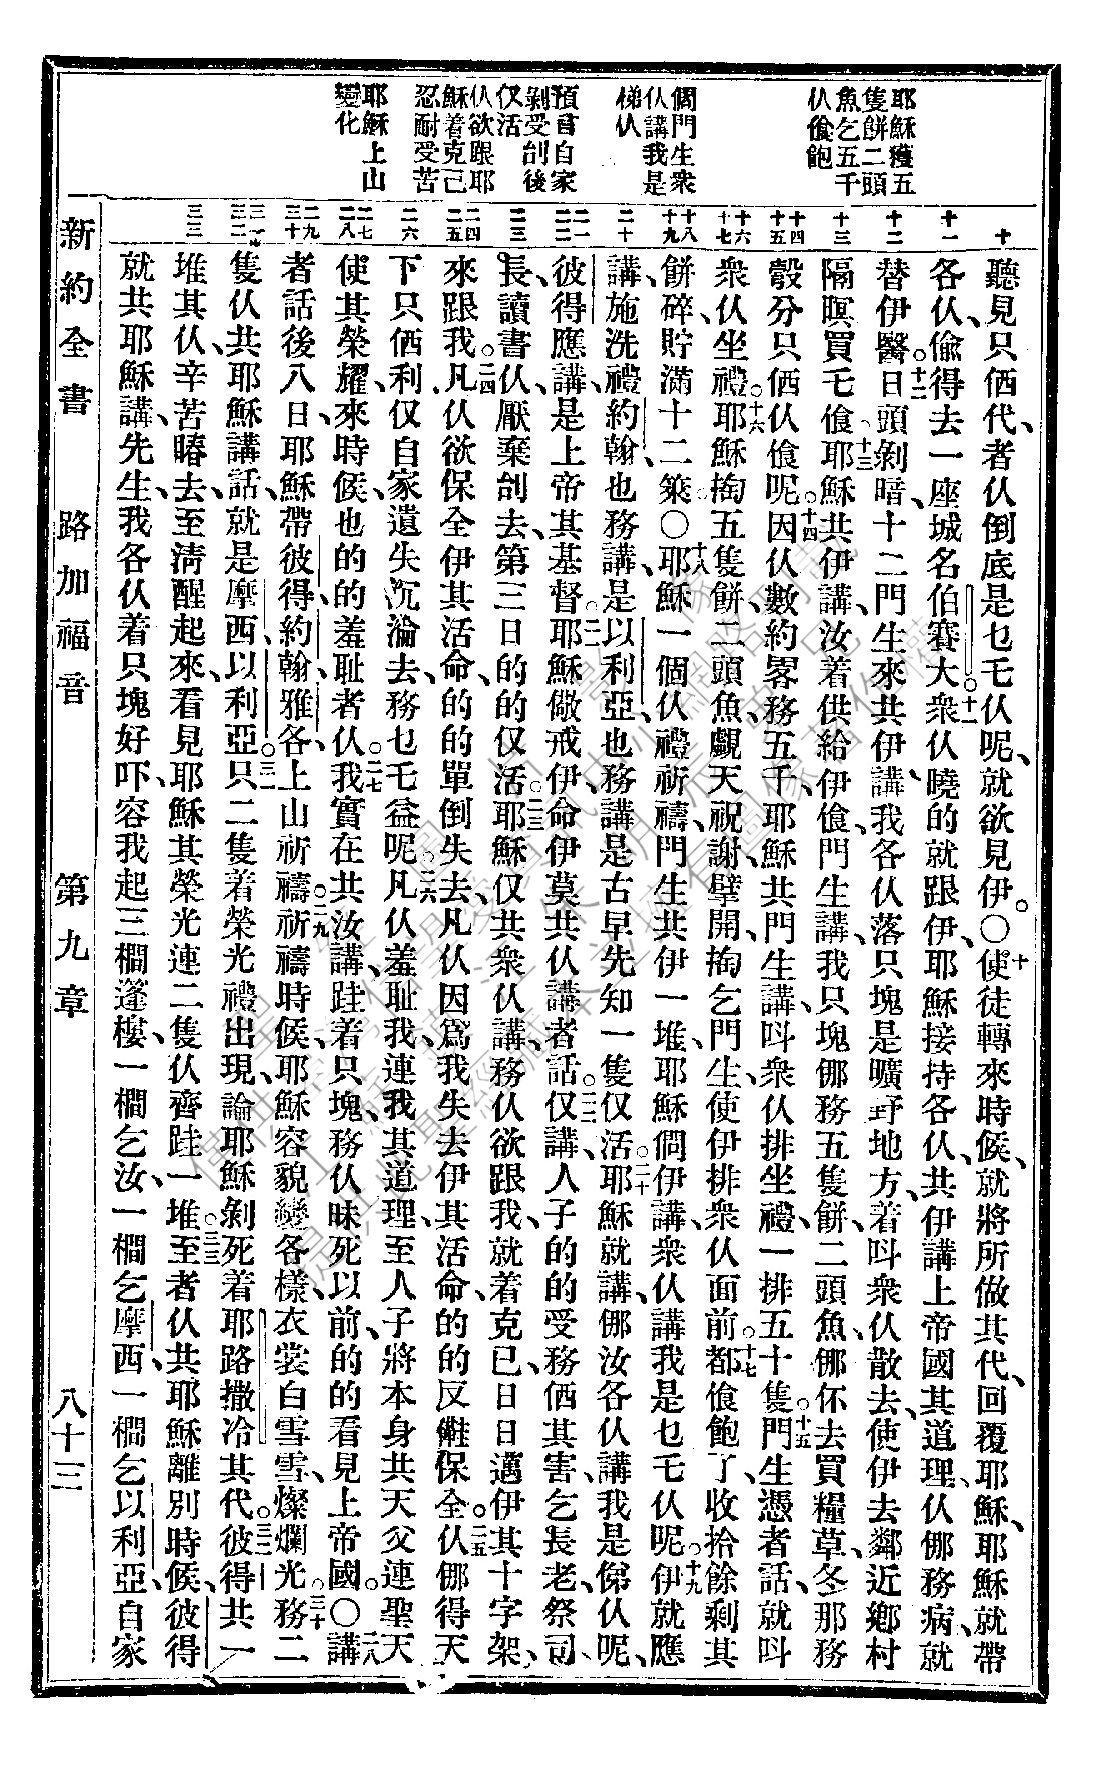 耶穌獲五
隻餅二頭
魚乞五千
仈飧飽
倜門生衆
仈講我是
悌仈
預言自家
剝受剖後
仅活
仈欲跟耶
穌着克己
忍耐受苦
耶穌上山
變化
聽見只個代、者仈倒底是乜乇仈呢、就欲見伊。○十使徒轉來時候、就將所做其代、回覆耶穌、耶穌就帶
各仈、偷得去一座城名伯賽大。十一衆仈曉的就跟伊、耶穌接持各仈、共伊講上帝國其道理、仈㑚務病、就
替伊醫。十二日頭剝暗、十二門生來共伊講、我各仈落只塊是曠野地方、着呌衆仈散去、使伊去鄰近鄉村
隔暝買乇飧。十三耶穌共伊講、汝着供給伊飧、門生講、我只塊㑚務五隻餅、二頭魚、㑚伓去買糧草、冬那務
彀分只個仈飧呢。十四因仈數約畧務五千、耶穌共門生講、呌衆仈排坐禮、一排五十隻。十五門生憑者話、就呌
衆仈坐禮。十六耶穌掏五隻餅、二頭魚、覷天祝謝、擘開、掏乞門生、使伊排衆仈面前。十七都飧飽了、收拾餘剩其
餅碎、貯滿十二籅。○十八耶穌一個仈禮祈禱、門生共伊一堆、耶穌倜伊講、衆仈講我是乜乇仈呢。十九伊就應
講、施洗禮約翰、也務講是以利亞、也務講是古早先知一隻仅活。二十耶穌就講、㑚汝各仈講我是俤仈呢、
彼得應講、是上帝其基督。二一耶穌儆戒伊、命伊莫共仈講者話。二二仅講、人子的的受務個其害、乞長老、祭司
長、讀書仈、厭棄刣去、第三日的的仅活。二三耶穌仅共衆仈講、務仈欲跟我、就着克己、日日邁伊其十字架、
來跟我。二四凡仈欲保全伊其活命、的的單倒失去、凡仈因爲我失去伊其活命、的的反儺保全。二五仈㑚得天
下只個利、仅自家遺失沉淪去、務乜乇益呢。二六凡仈羞耻我、連我其道理、至人子將本身共天父連聖天
使其榮耀、來時候、也的的羞耻者仈。二七我實在共汝講、跬着只塊務仈昧死以前、的的看見上帝國。○二八講
者話後八日、耶穌帶彼得、約翰、雅各、上山祈禱。二九祈禱時候、耶穌容貌變各樣、衣裳白雪雪、燦爛光。三十務二
隻仈、共耶穌講話、就是摩西、以利亞。三一只二隻着榮光禮出現、論耶穌剝死着耶路撒冷其代。三二彼得共一
堆其仈、辛苦睶去、至淸醒起來、看見耶穌其榮光、連二隻仈齊跬一堆。三三至者仈共耶穌離別時候、彼得
就共耶穌講、先生、我各仈着只塊好吓、容我起三橺蓬樓、一橺乞汝、一橺乞摩西、一橺乞以利亞、自家
新約全書　路加福音　第九章　八十三